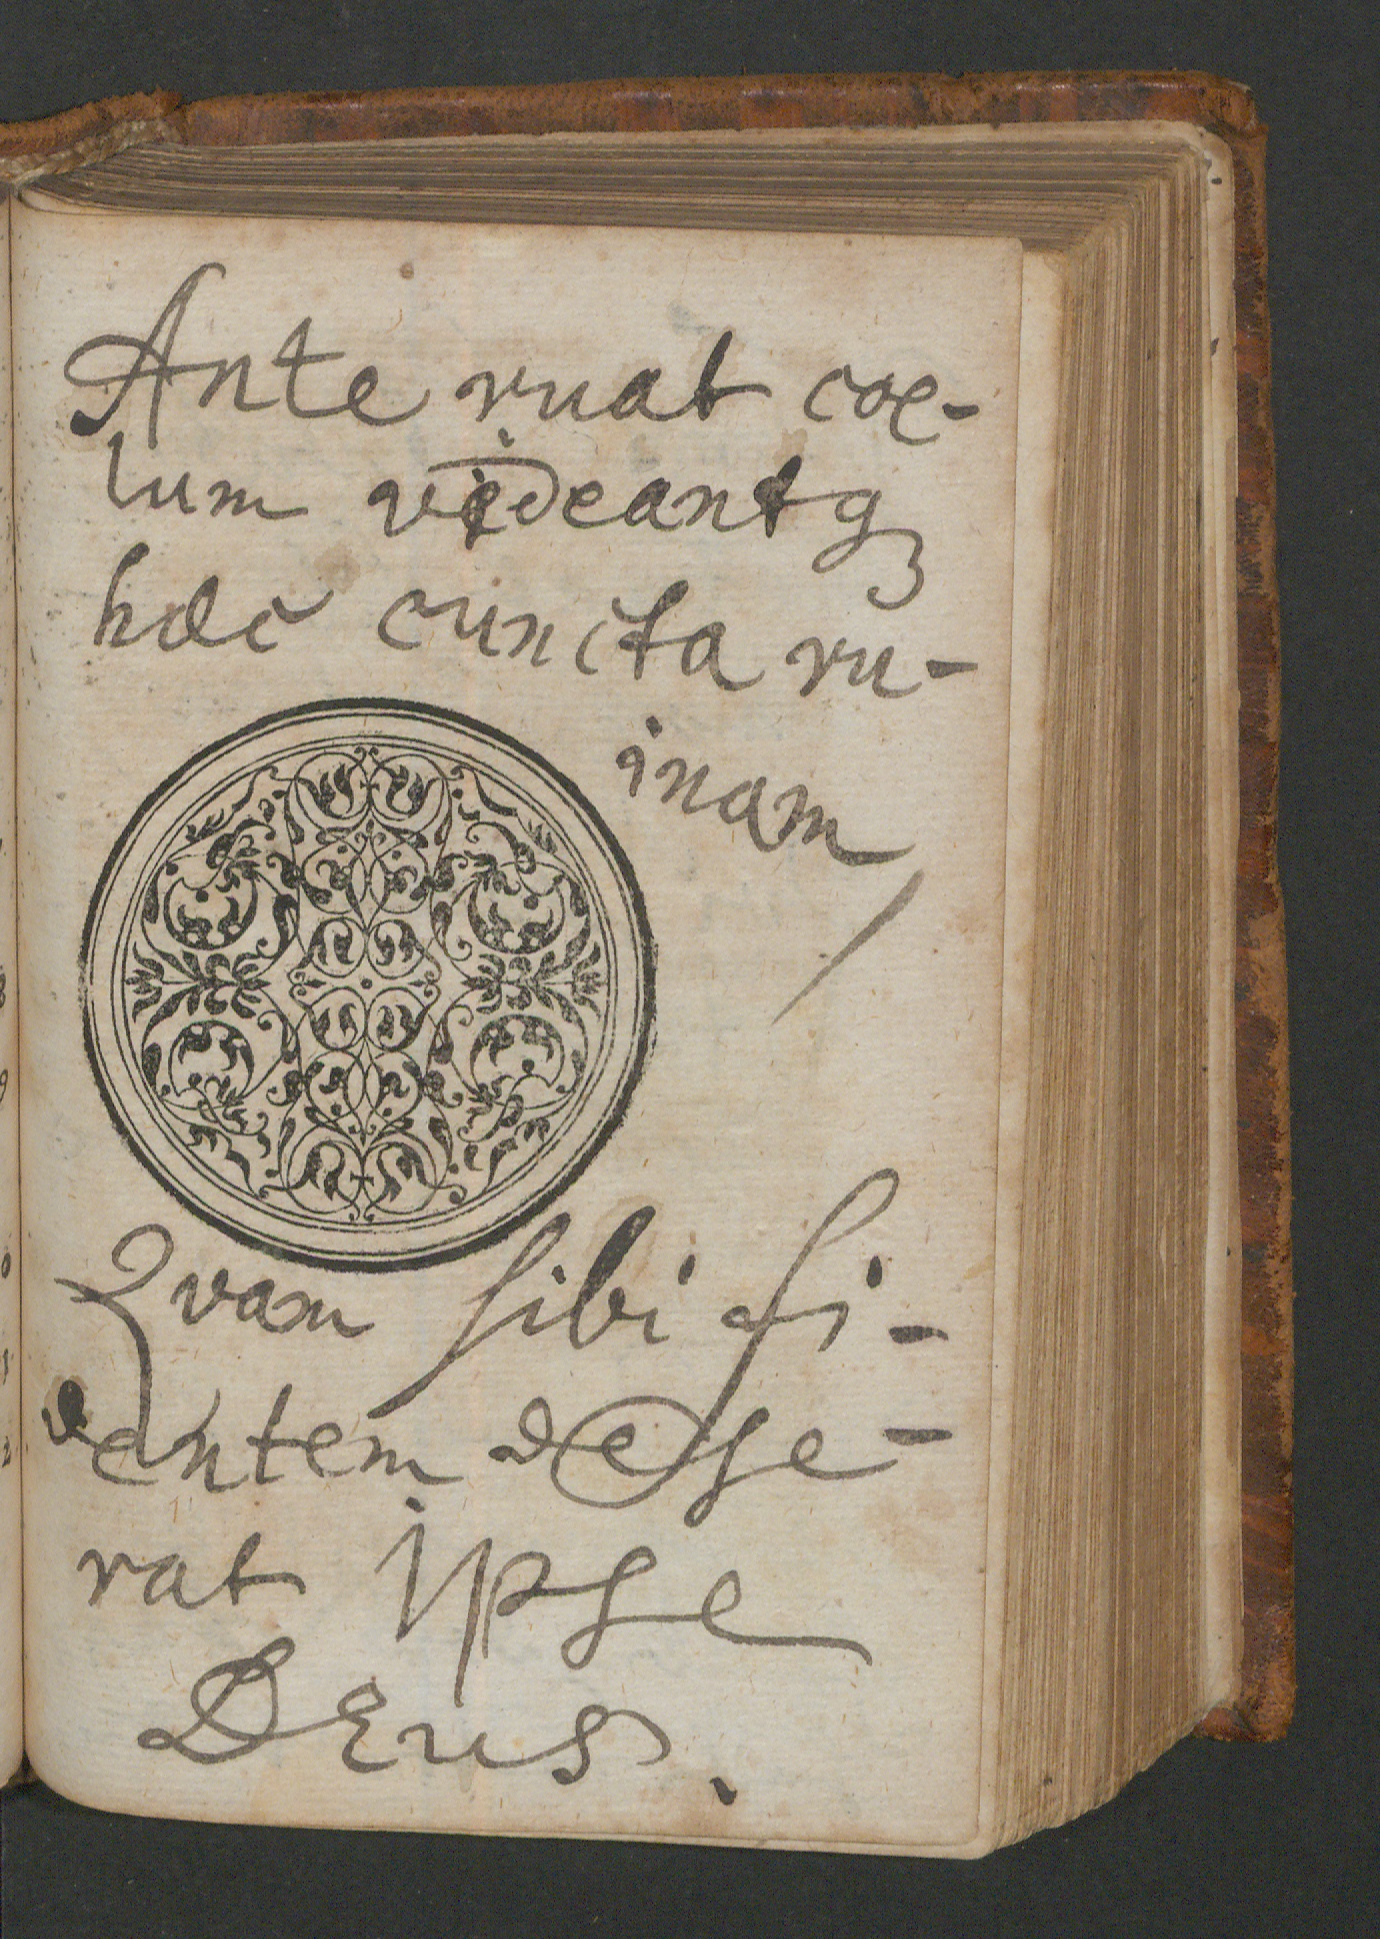 Ante ruat coe-
lum videantq3
haec cuncta ru-
inam
Qvam sibi fi-
dentem dese-
rat ipse
DEus.